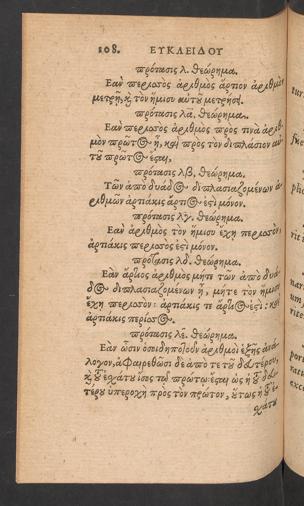 108. ΕΥΚΛΕΙΔΟΥ
πρότασις λ. θεώρημα.
Εὰν περισσὸς ἀριθμὸς ἄρτιον ἀριθμὸν
μετρῇ, καὶ τὸν ἥμισυν αὐτοῦ μετρήσει.
πρότασις λα. θεώρημα.
Εὰν περισσὸς ἀριθμὸς πρός τινα ἀριθ-
μὸν πρῶτος ᾖ, καὶ πρὸς τὸν διπλάσιον αὐ-
τοῦ πρῶτος ἔσται,
πρότασις λβ, θεώρημα.
Τῶν ἀπὸ δυάδος διπλασιαζομένων ἀ-
ριθμῶν ἀρτιάκις ἄρτιός ἐστι μόνον.
πρότασις λγ. θεώρημα.
Εὰν ἀριθμὸς τὸν ἥμισυν ἔχῃ περισσόν,
ἀρτιάκις περισσός ἐστι μόνον.
πρότασις λδ. θεώρημα.
Εὰν ἄρτιος ἀριθμὸς μήτε τῶν ἀπὸ δυά-
δος διπλασιαζομένων ᾖ, μήτε τὸν ἥμισυν
ἔχῃ περισσόν: ἀρτιάκις τε ἄρτιός ἐστι: καὶ
ἀρτιάκις περισσός.
πρότασις λε. θεώρημα.
Εὰν ὦσιν ὁσοιδηποτοῦν ἀριθμοὶ ἑξῆς ἀνά-
λογον, ἀφαιρεθῶσι δὲ ἀπό τε τοῦ δευτέρου,
καὶ τοῦ ἐσχάτου ἴσος τῷ πρώτῳ: ἔσται ὡς ἡ τοῦ δευ-
τέρου ὑπεροχὴ πρὸς τὸν πρῶτον, οὕτως ἡ τοῦ ἐ-
σχάτου